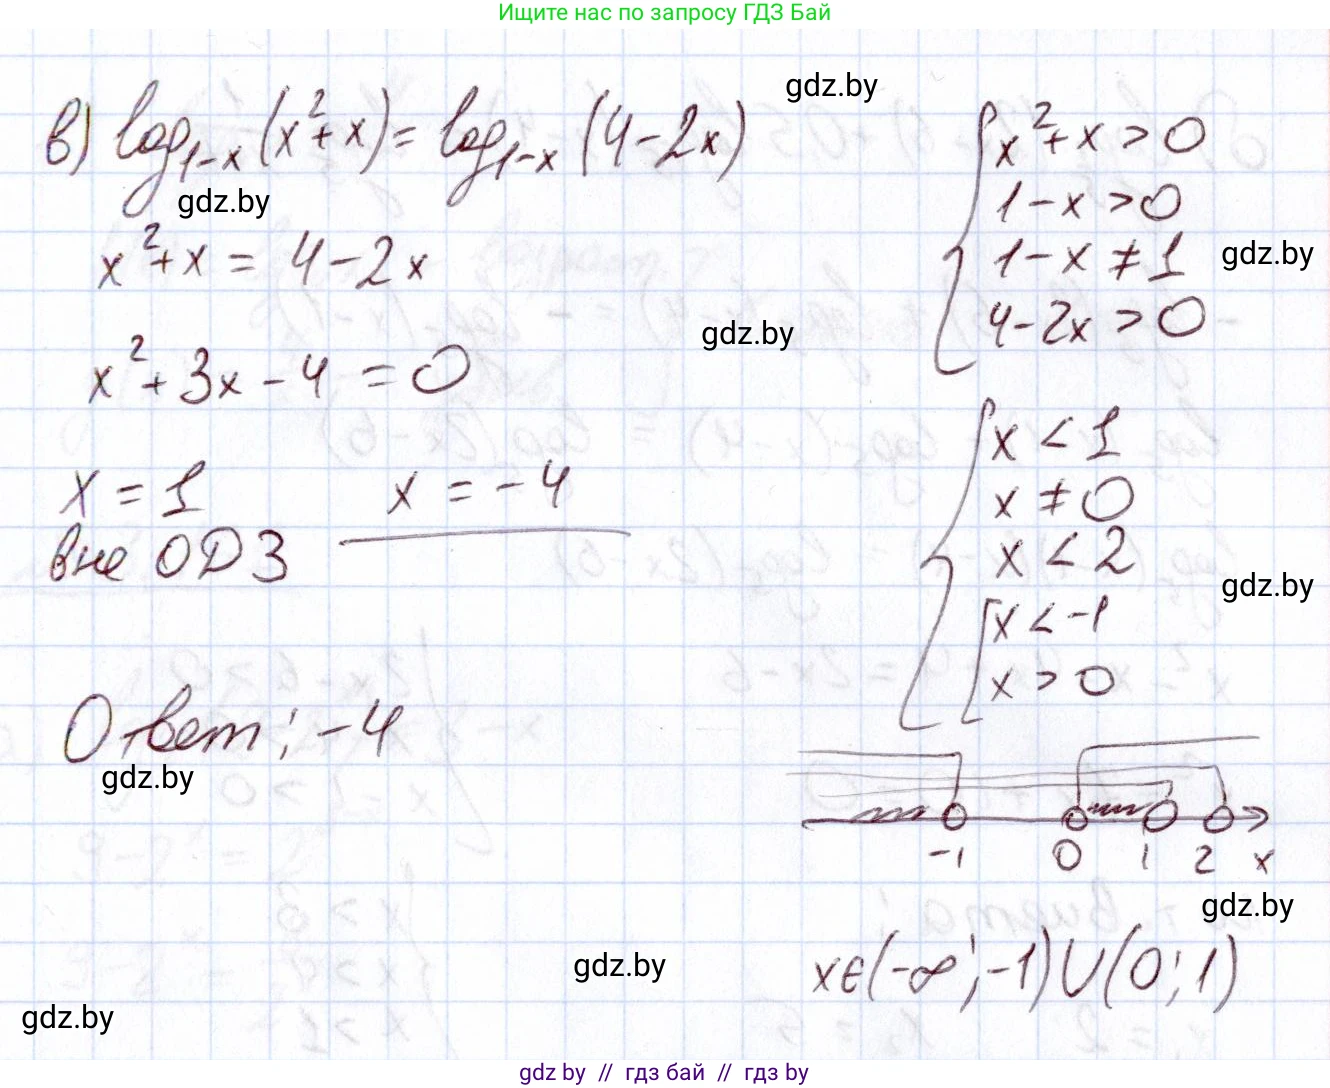 Ищите нас по запросу ГДЗ Бай
gdz.by
в) log₁₋ₓ(x²+x) = log₁₋ₓ(4-2x)
gdz.by
x²+x = 4-2x
x²+3x-4 = 0
gdz.by
x = 1 x = -4
вне ОДЗ
Ответ: -4
gdz.by
x²+x > 0
1-x > 0
1-x ≠ 1
gdz.by
4-2x > 0
x < 1
x ≠ 0
x < 2
gdz.by
x < -1
x > 0
-1 0 1 2 x
gdz.by
x∈(-∞;-1)∪(0;1)
gdz.by
gdz.by
gdz by // гдз бай // гдз by